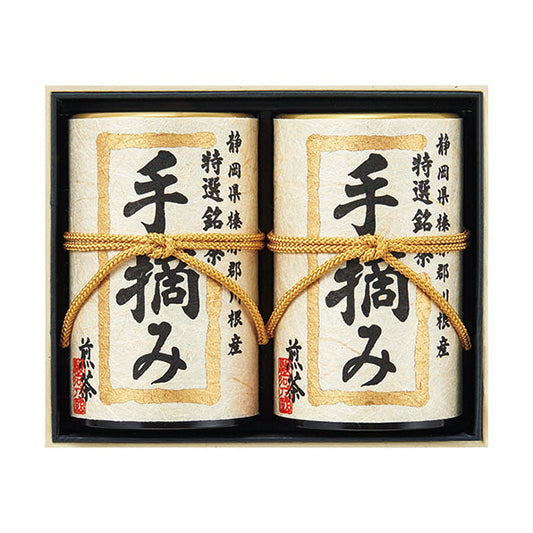 静岡県榛原郡川根産
特選銘茶
手摘み
煎茶
静岡県榛原郡川根産
特選銘茶
手摘み
煎茶